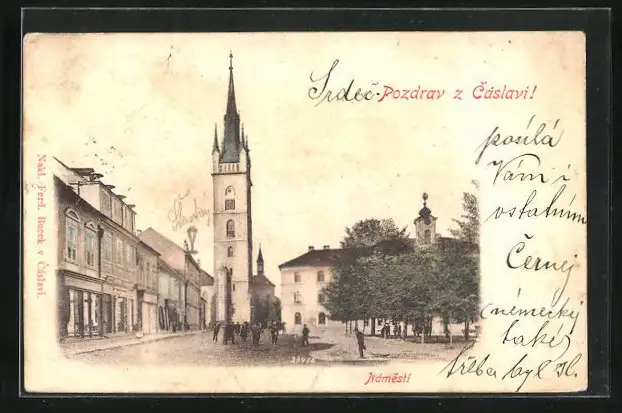 Srdeč Pozdrav z Čáslavi!
posílá
Vám i
ostatním
Černej
(německy
také)
třeba byl
Nakl. Ferd. Bucek v Čáslavi.
Náměstí